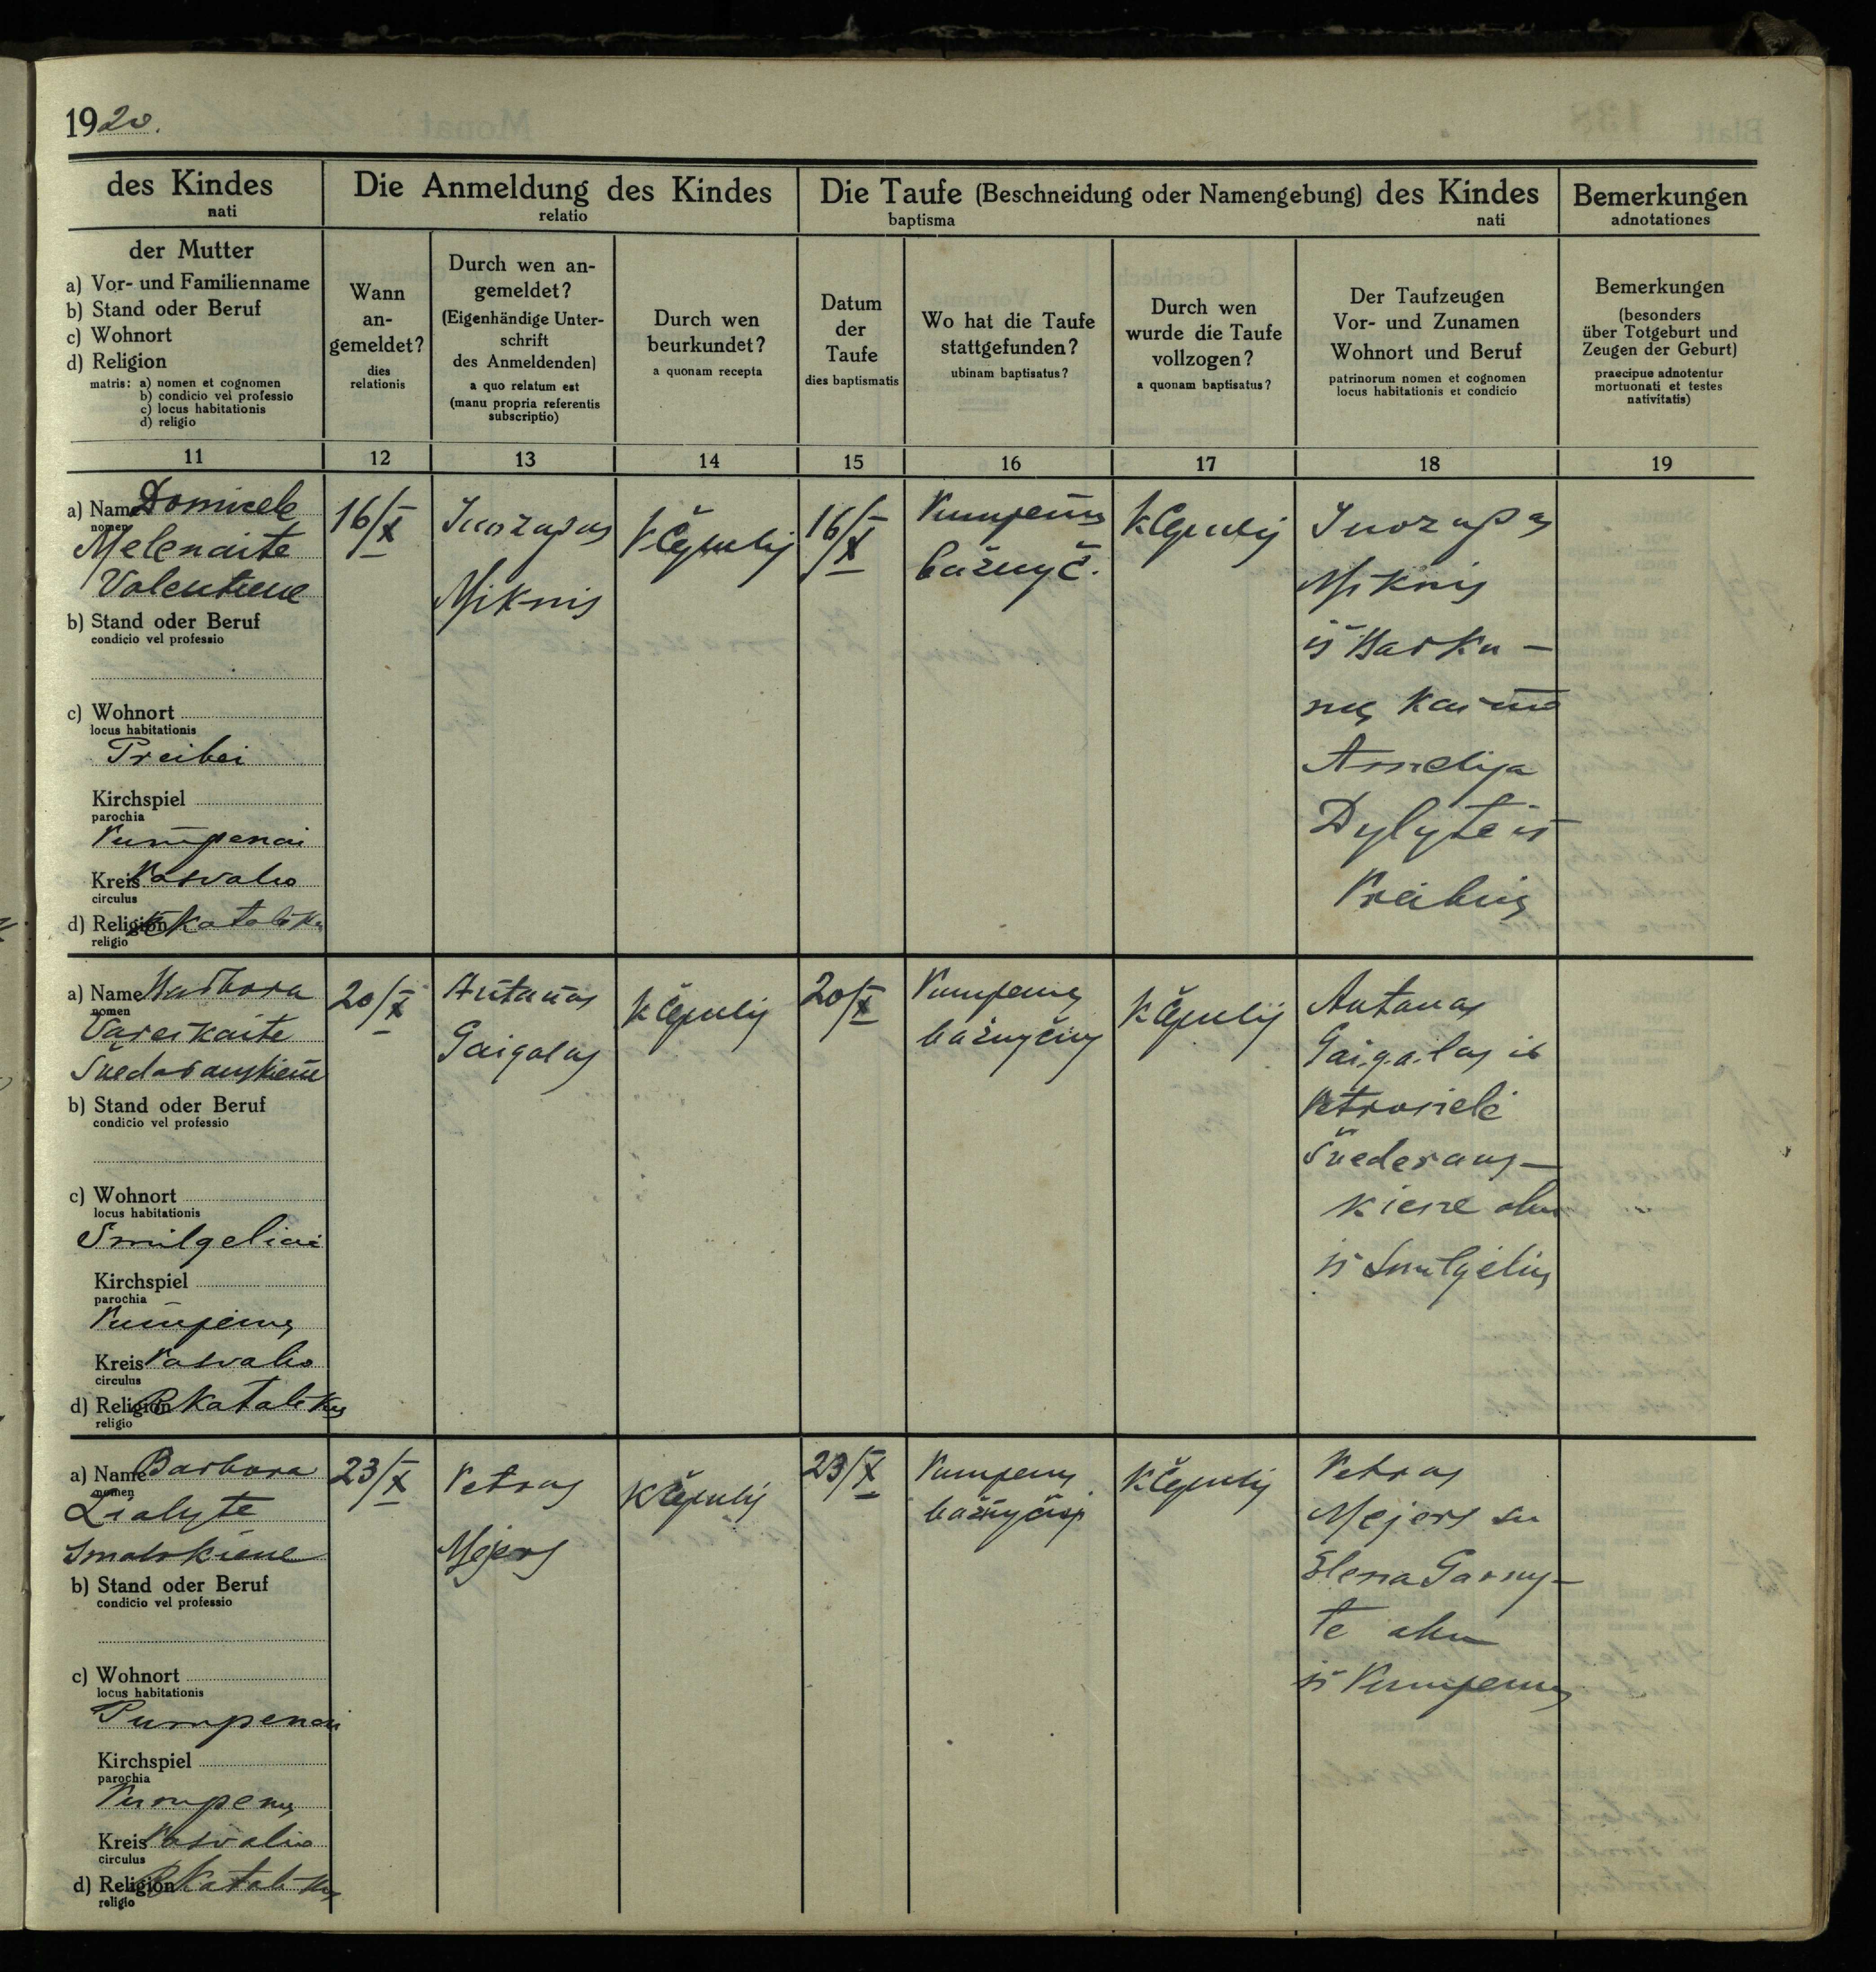 1920.
des Kindes
nati
Die Anmeldung des Kindes
relatio
Die Taufe (Beschneidung oder Namengebung) des Kindes
baptisma nati
Bemerkungen
adnotationes
der Mutter
a) Vor- und Familienname
b) Stand oder Beruf
c) Wohnort
d) Religion
matris: a) nomen et cognomen
b) condicio vel professio
c) locus habitationis
d) religio
Wann
an-
gemeldet?
dies
relationis
Durch wen an-
gemeldet?
(Eigenhändige Unter-
schrift
des Anmeldenden)
a quo relatum est
(manu propria referentis
subscriptio)
Durch wen
beurkundet?
a quonam recepta
Datum
der
Taufe
dies baptismatis
Wo hat die Taufe
stattgefunden?
ubinam baptisatus?
Durch wen
wurde die Taufe
vollzogen?
a quonam baptisatus?
Der Taufzeugen
Vor- und Zunamen
Wohnort und Beruf
patrinorum nomen et cognomen
locus habitationis et condicio
Bemerkungen
(besonders
über Totgeburt und
Zeugen der Geburt)
praecipue adnotentur
mortuonati et testes
nativitatis)
11 12 13 14 15 16 17 18 19
a) Name Domicele
nomen
Melenaite
Valentiene
b) Stand oder Beruf
condicio vel professio
c) Wohnort
locus habitationis
Preibei
Kirchspiel
parochia
Pumpenai
Kreis Pasvalio
circulus
d) Religion
religio
16/X
Juozapas
Miknis
K Čepulis
16/X
Pumpenų
bažnyč.
K Čepulis
Juozapas
Miknis
iš Barku-
nų kaimo
Amelija
Dylyte iš
Preibių
a) Name Barbora
nomen
Vareikaite
b) Stand oder Beruf
condicio vel professio
c) Wohnort
locus habitationis
Smilgeliai
Kirchspiel
parochia
Pumpenų
Kreis Pasvalio
circulus
d) Religion R Katalikų
religio
20/X
Antanas
Gaigalas
K Čepulis
20/X
Pumpenų
K Čepulis
Antanas
Gaigalas ir
Petronelė
kiene abu
iš Smilgelių
a) Name Barbora
nomen
Zialyte
b) Stand oder Beruf
condicio vel professio
c) Wohnort
locus habitationis
Pumpenai
Kirchspiel
parochia
Pumpenų
Kreis Pasvalio
circulus
d) Religion R Katalikų
religio
23/X
Petras
Mejers
K Čepulis
23/X
Pumpenų
K Čepulis
Petras
Mejers su
Elena Garny-
te abu
iš Pumpenų